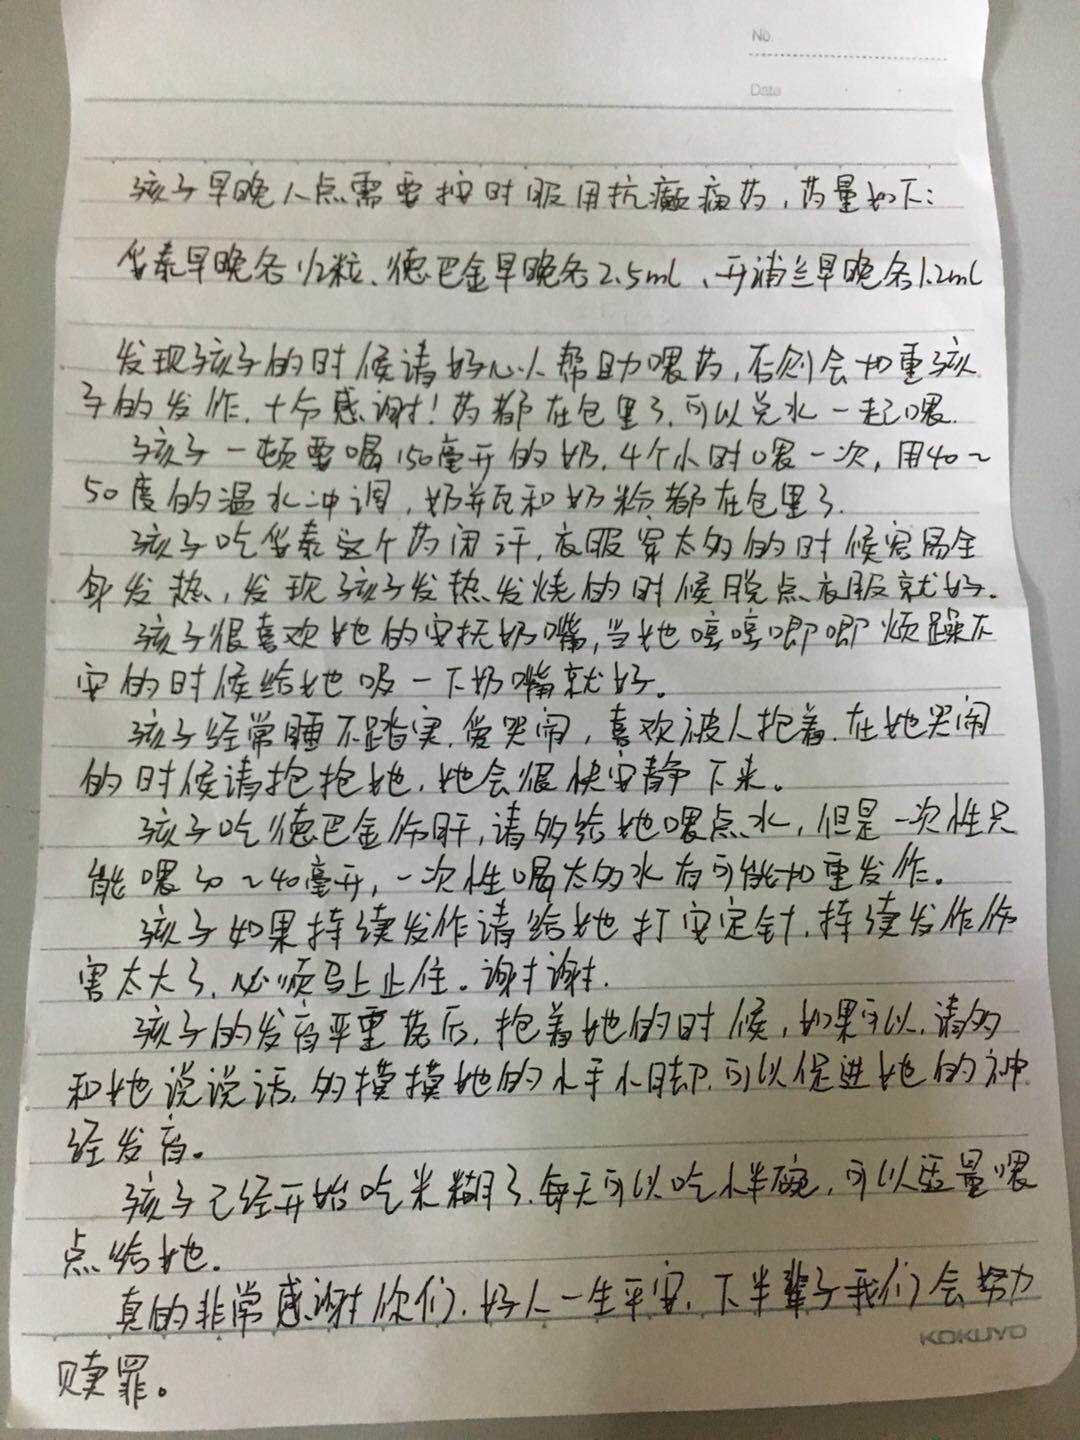 No.
Date
孩子早晚八点需要按时服用抗癫痫药，药量如下：
华素早晚各1/2粒、德巴金早晚各2.5ml、开浦兰早晚各1.2ml
发现孩子的时候请好心人帮助喂药，否则会加重孩
子的发作，十分感谢！药都在包里了，可以兑水一起喂.
孩子一顿要喝150毫升的奶，4个小时喂一次，用40~
50度的温水冲调，奶瓶和奶粉都在包里了.
孩子吃华素这个药闭汗，衣服穿太多的时候容易全
身发热，发现孩子发热发烧的时候脱点衣服就好.
孩子很喜欢她的安抚奶嘴，当她哼哼唧唧烦躁不
安的时候给她吸一下奶嘴就好。
孩子经常睡不踏实，爱哭闹，喜欢被人抱着，在她哭闹
的时候请抱抱她，她会很快安静下来。
孩子吃德巴金伤肝，请多给她喂点水，但是一次性只
能喂30~40毫升，一次性喝太多水有可能加重发作。
孩子如果持续发作请给她打安定针，持续发作伤
害太大了，必须马上止住。谢谢谢.
孩子的发育严重落后，抱着她的时候，如果可以，请多
和她说说话，多摸摸她的小手小脚，可以促进她的神
经发育。
孩子已经开始吃米糊了，每天可以吃小半碗，可以适量喂
点给她.
真的非常感谢你们，好人一生平安，下半辈子我们会努力
KOKUYO
赎罪。